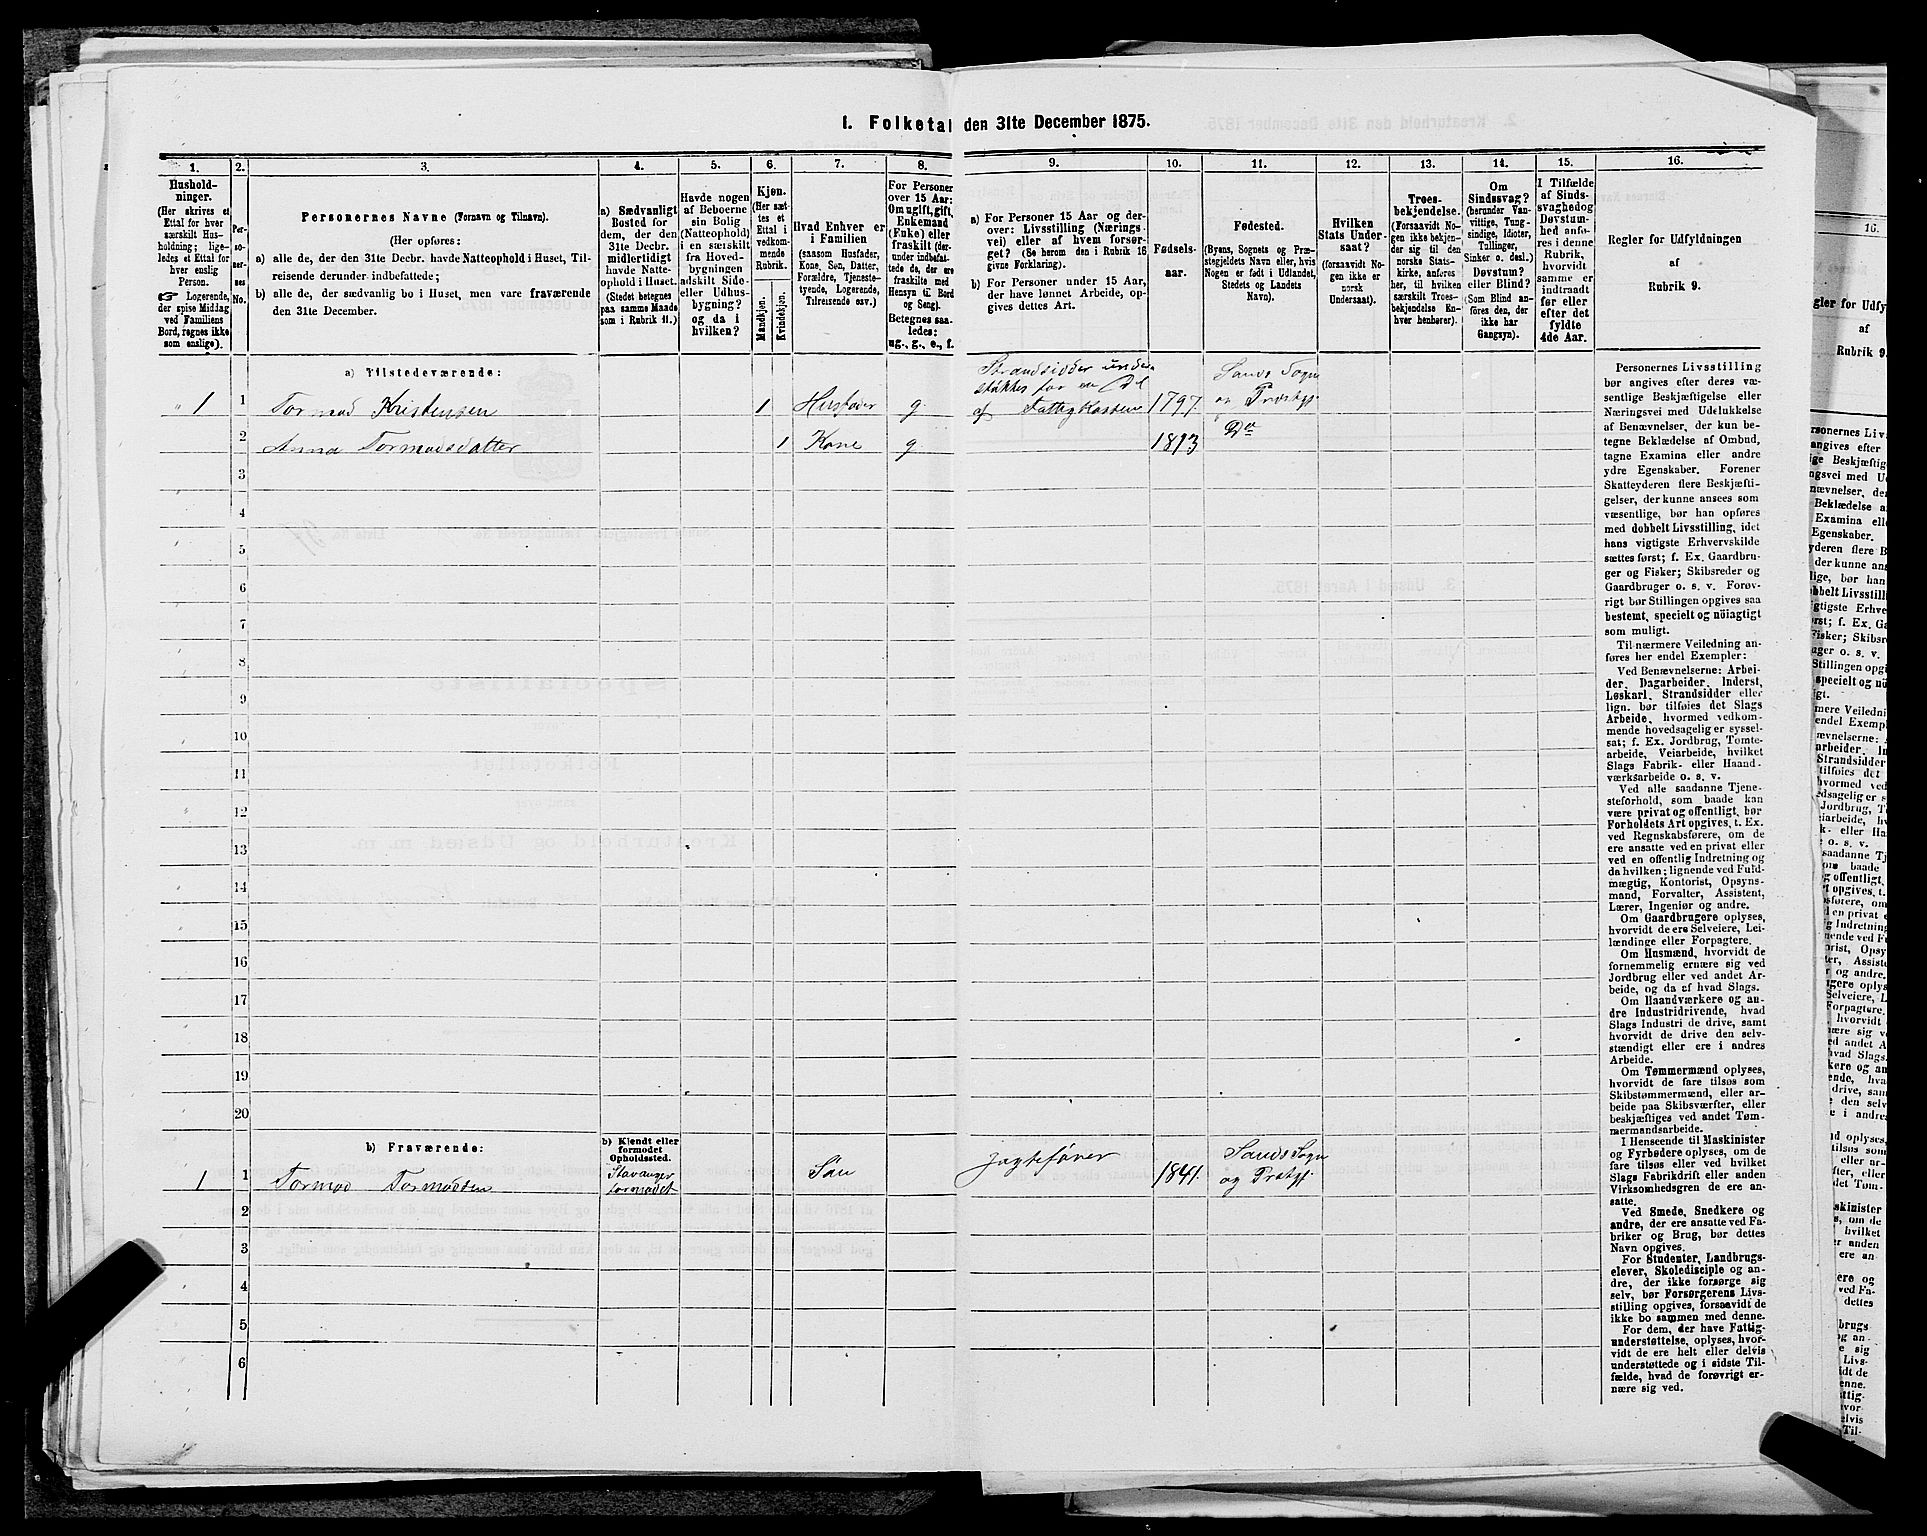 1. Folketal den 31te December 1875.
1.
2.
3.
4.
5.
6.
7.
8.
9.
10.
11.
12.
13.
14.
15.
16.
Hushold-
ninger.
(Her skrives et
Ettal for hver
særskilt Hus-
holdning; lige-
ledes et Ettal for
hver enslig
Person.
☞ Logerende,
der spise Middag
ved Familiens
Bord, regnes ikke
som enslige).
Per-
so-
ner-
nes
No.
Personernes Navne (Fornavn og Tilnavn).
(Her opføres:
a) alle de, der den 31te Decbr. havde Natteophold i Huset, Til-
reisende derunder indbefattede;
b) alle de, der sædvanlig bo i Huset, men vare fraværende
den 31te December.
a) Sædvanligt
Bosted for
dem, der den
31te Decbr.
midlertidigt
havde Natte-
ophold i Huset.
(Stedet betegnes
paa samme Maade
som i Rubrik 11.)
Havde nogen
af Beboerne
sin Bolig
(Natteophold)
i en særskilt
fra Hoved-
bygningen
adskilt Side-
eller Udhus-
bygning?
og da i
hvilken?
Kjøn.
(Her sæt-
tes et
Ettal i
vedkom-
mende
Rubrik.
Mandkjøn.
Kvindekjøn.
Hvad Enhver er
i Familien
(saasom Husfader,
Kone, Søn, Datter,
Forældre, Tjeneste-
tyende, Logerende,
Tilreisende osv.)
For Personer
over 15 Aar:
Om ugift, gift,
Enkemand
(Enke) eller
fraskilt (der-
under indbefat-
tede de, der ere
fraskilte med
Hensyn til Bord
og Seng).
Betegnes saa-
ledes:
ug., g., e., f.
a) For Personer 15 Aar og der-
over: Livsstilling (Nærings-
vei) eller af hvem forsør-
get? (Se herom den i Rubrik 16
givne Forklaring).
b) For Personer under 15 Aar,
der have lønnet Arbeide, op-
gives dettes Art.
Fødsels-
aar.
Fødested.
(Byens, Sognets og Præ-
stegjeldets Navn eller, hvis
Nogen er født i Udlandet,
Stedets og Landets
Navn).
Hvilken
Stats Under-
saat?
(forsaavidt No-
gen ikke er
norsk
Undersaat).
Troes-
bekjendelse.
(Forsaavidt No-
gen ikke bekjen-
der sig til den
norske Stats-
kirke, anføres
her, til hvilken
særskilt Troes-
bekjendelse En-
hver henhører).
Om
Sindssvag?
(herunder Van-
vittige, Tung-
sindige, Idioter,
Tullinger,
Sinker o. desl.)
Døvstum?
eller Blind?
(Som Blind an-
føres den, der
ikke har
Gangsyn).
I Tilfælde
af Sinds-
svaghed og
Døvstum-
hed anfø-
res i denne
Rubrik,
hvorvidt
samme er
indtraadt
før eller
efter det
fyldte
4de Aar.
Regler for Udfyldningen
af
Rubrik 9.
a) Tilstedeværende:
1 1 Tormod Kristensen 1 Husfader g. Strandsidder under-
støttes for en Del
af Fattigkassen 1797. Sands Sogn
og Præstgj.
2 Anna Tormodsdatter 1 Kone g. 1813 Do
3
4
5
6
7
8
9
10
11
12
13
14
15
16
17
18
19
20
b) Fraværende:
b) Kjendt eller
formodet
Opholdssted.
1 1 Tormod Tormodsen Stavanger
formodet Søn Jagtefører 1841. Sands Sogn
og Præstgj.
2
3
4
5
6
Personernes Livsstilling
bør angives efter deres væ-
sentlige Beskjæftigelse eller
Næringsvei med Udelukkelse
af Benævnelser, der kun be-
tegne Beklædelse af Ombud,
tagne Examina eller andre
ydre Egenskaber. Forener
Skatteyderen flere Beskjæfti-
gelser, der kunne ansees som
væsentlige, bør han opføres
med dobbelt Livsstilling, idet
hans vigtigste Erhvervskilde
sættes først; f. Ex. Gaardbru-
ger og Fisker; Skibsreder og
Gaardbruger o. s. v. Forøv-
rigt bør Stillingen opgives saa
bestemt, specielt og nöiagtigt
som muligt.
Til nærmere Veiledning an-
føres her endel Exempler:
Ved Benævnelserne: Arbei-
der, Dagarbeider, Inderst,
Løskarl, Strandsidder eller
lign. bør tilføies det Slags
Arbeide, hvormed vedkom-
mende hovedsagelig er syssel-
sat; f. Ex. Jordbrug, Tomte-
arbeide, Veiarbeide, hvilket
Slags Fabrik- eller Haand-
værksarbeide o. s. v.
Ved alle saadanne Tjene-
steforhold, som baade kan
være privat og offentligt, bør
Forholdets Art opgives, t. Ex.
ved Regnskabsførere, om de
ere ansatte ved en privat eller
ved en offentlig Indretning og
da hvilken; lignende ved Fuld-
mægtig, Kontorist, Opsyns-
mand, Forvalter, Assistent,
Lærer, Ingeniør og andre.
Om Gaardbrugere oplyses,
hvorvidt de ere Selveiere, Lei-
lændinge eller Forpagtere.
Om Husmænd, hvorvidt de
fornemmelig ernære sig ved
Jordbrug eller ved andet Ar-
beide, og da af hvad Slags.
Om Haandværkere og an-
dre Industridrivende, hvad
Slags Industri de drive, samt
hvorvidt de drive den selv-
stændigt eller ere i andres
Arbeide.
Om Tømmermænd oplyses,
hvorvidt de fare tilsøs som
Skibstømmermænd, eller ar-
beide paa Skibsværfter, eller
beskjæftiges ved andet Tøm-
mermandsarbeide.
I Henseende til Maskinister
og Fyrbødere oplyses, om de
fare tilsøs eller ved hvilket
Slags Fabrikdrift eller anden
Virksomhedsgren de ere an-
satte.
Ved Smede, Snedkere og
andre, der ere ansatte ved Fa-
briker og Brug, bør dettes
Navn opgives.
For Studenter, Landbrugs-
elever, Skoledisciple og an-
dre, der ikke forsørge sig
selv, bør Forsørgerens Livs-
stilling opgives, forsaavidt de
ikke bo sammen med denne.
For dem, der have Fattig-
understøttelse, oplyses, hvor-
vidt de ere helt eller delvis
understøttede og i sidste Til-
fælde, hvad de forøvrigt er-
nære sig ved.